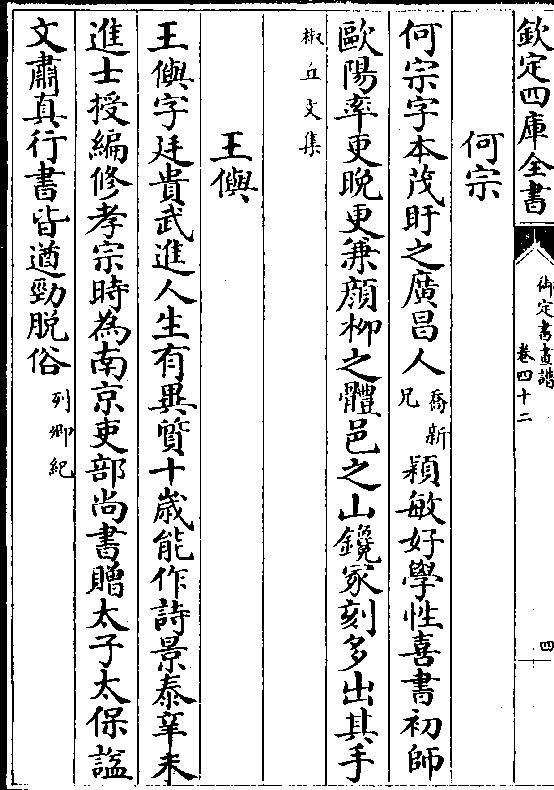 欽定四庫全書
御定書畫譜
卷四十二
四
何宗
何宗字本茂盱之廣昌人喬新兄穎敏好學性喜書初師
歐陽率更晩更兼顔柳之體邑之山鑱冢刻多出其手
椒丘文集
王㒜
王㒜字廷貴武進人生有異質十歲能作詩景泰辛未
進士授編修孝宗時為南京吏部尚書贈太子太保諡
文肅真行書皆遒勁脱俗列卿紀